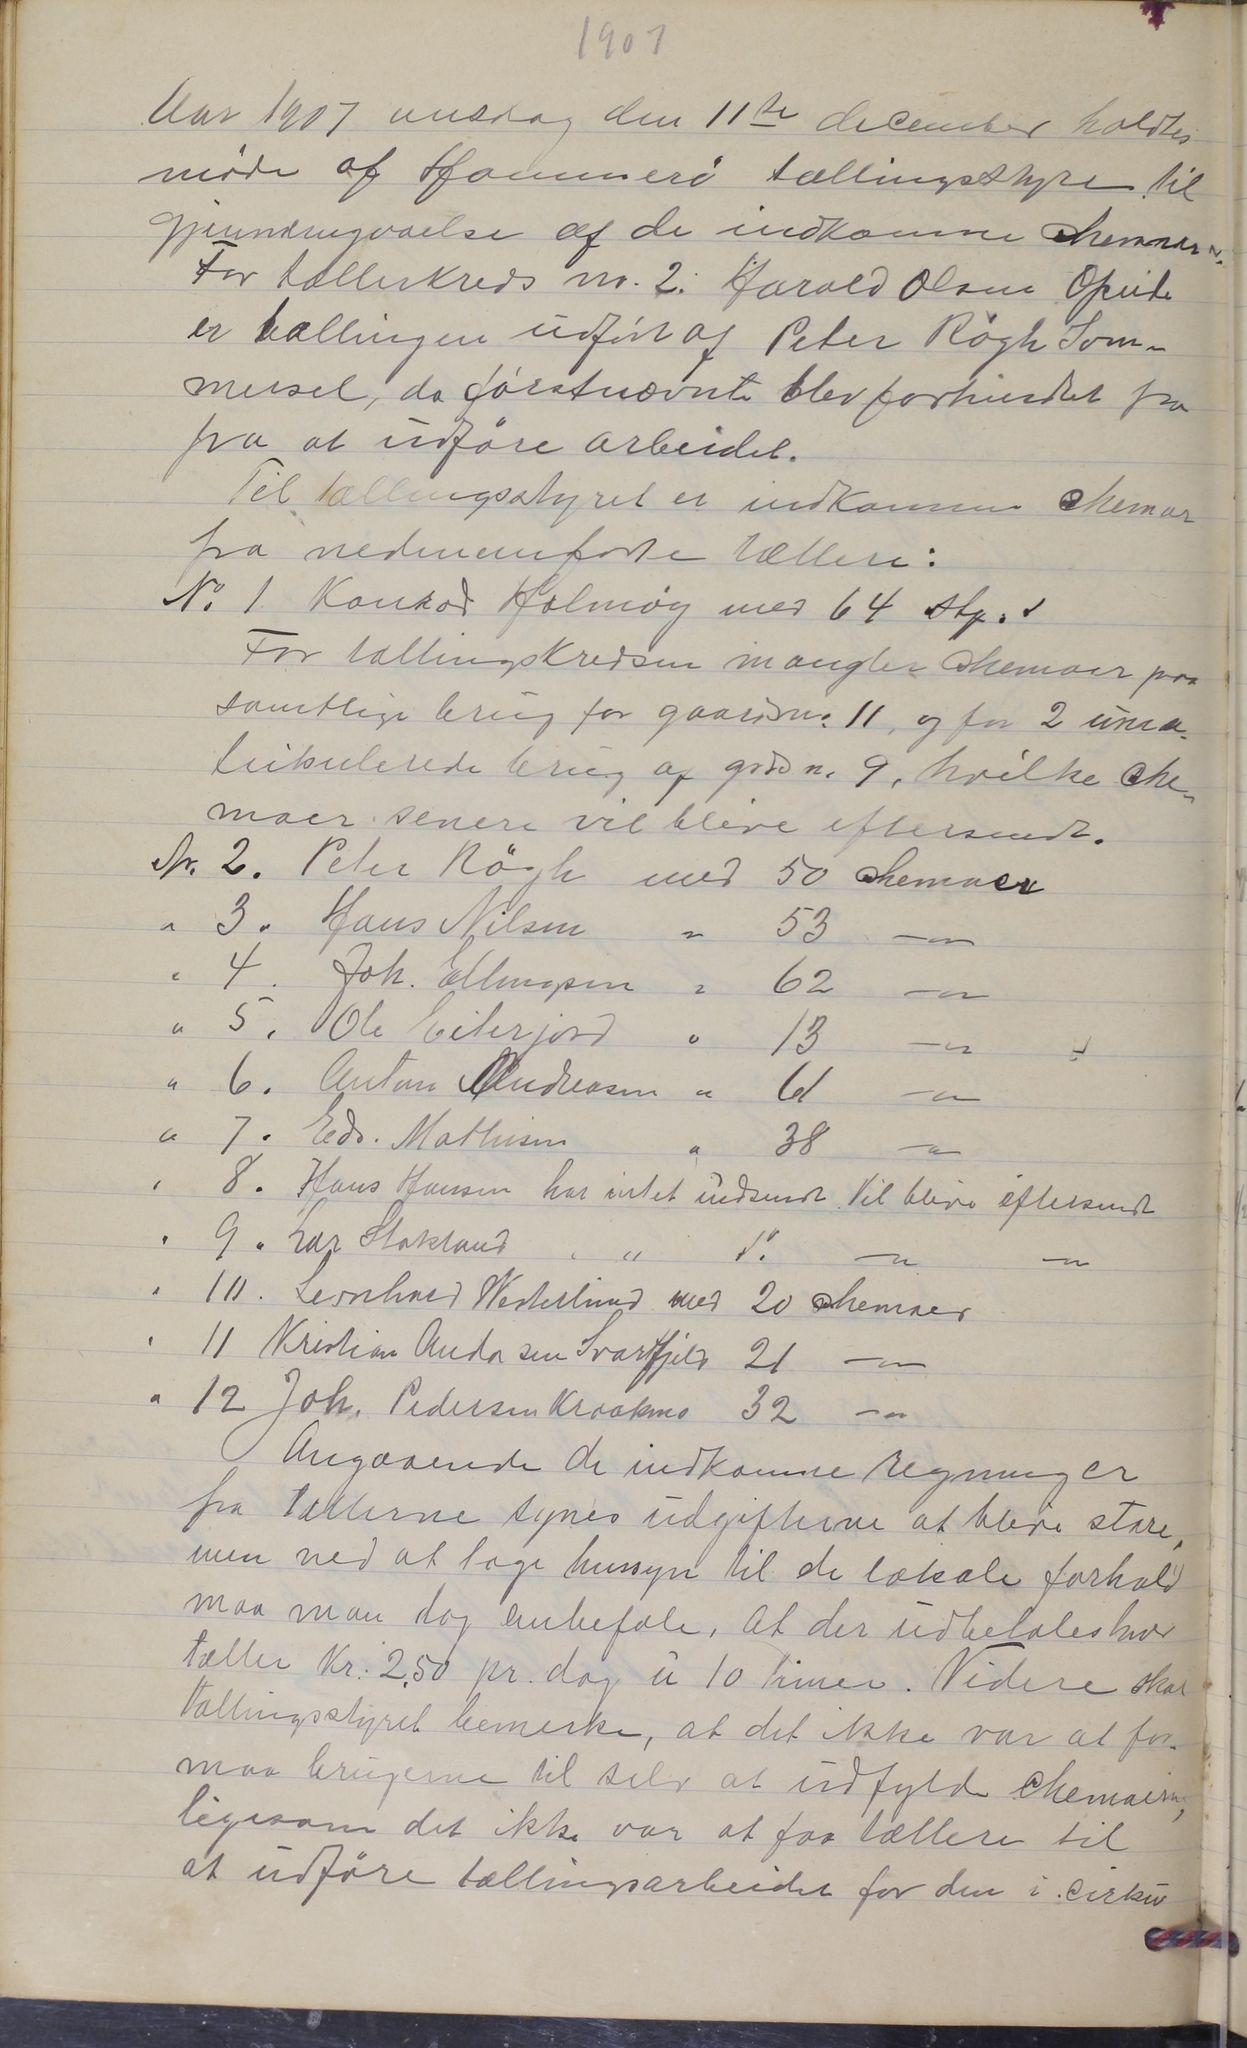 1907
Aar 1907 onsdag den 11te december holdtes
møde af Hammerö tællingsstyre til
gjennemgaaelse af de indkomne skemaer.
For tællerkreds no. 2. Harald Olsen Opeide
er tællingen udført af Peter Rögh Som-
mersel, da førstnævnte blev forhindret fra
fra at udföre arbeidet.
Til tællingsstyret er indkommen skemaer
fra nedennemførte tællere:
No. 1 Konrad Holmøy med 64 stk.
For tællingskredsen mangler skemaer paa
samtlige brug for gaardsn. 11, og for 2 uma-
trikulerede brug af grdsn. 9, hvilke ske-
maer senere vil blive eftersendt.
Nr. 2. Peter Rögh med 50 skemaer
" 3. Hans Nilsen " 53 —"—
" 4. Joh. Ellingsen " 62 —"—
" 5. Ole Eiterjord " 13 —"—
" 6. Anton Andreasen " 61 —"—
" 7. Edv. Mathisen " 38 —"—
" 8. Hans Hansen har intet indsendt. Vil blive eftersendt
" 9. Lar Stokland " " d. —"— —"—
" 10. Leonhard Westerlund med 20 skemaer
" 11 Kristian Andersen Svartfjeld 21 —"—
" 12 Joh. Pedersen Kraakmo 32 —"—
Angaaende de indkomne regninger
fra tællerne synes udgifterne at blive store,
men ved at tage hensyn til de lokale forhold
maa man dog anbefale, at der udbetales hver
tæller Kr. 2,50 pr. dag à 10 timer. Videre skal
tællingsstyret bemerke, at det ikke var at for-
maa brugerne til selv at udfylde skemaerne,
ligesom det ikke var at faa tællere til
at udföre tællingsarbeidet for den i cirku